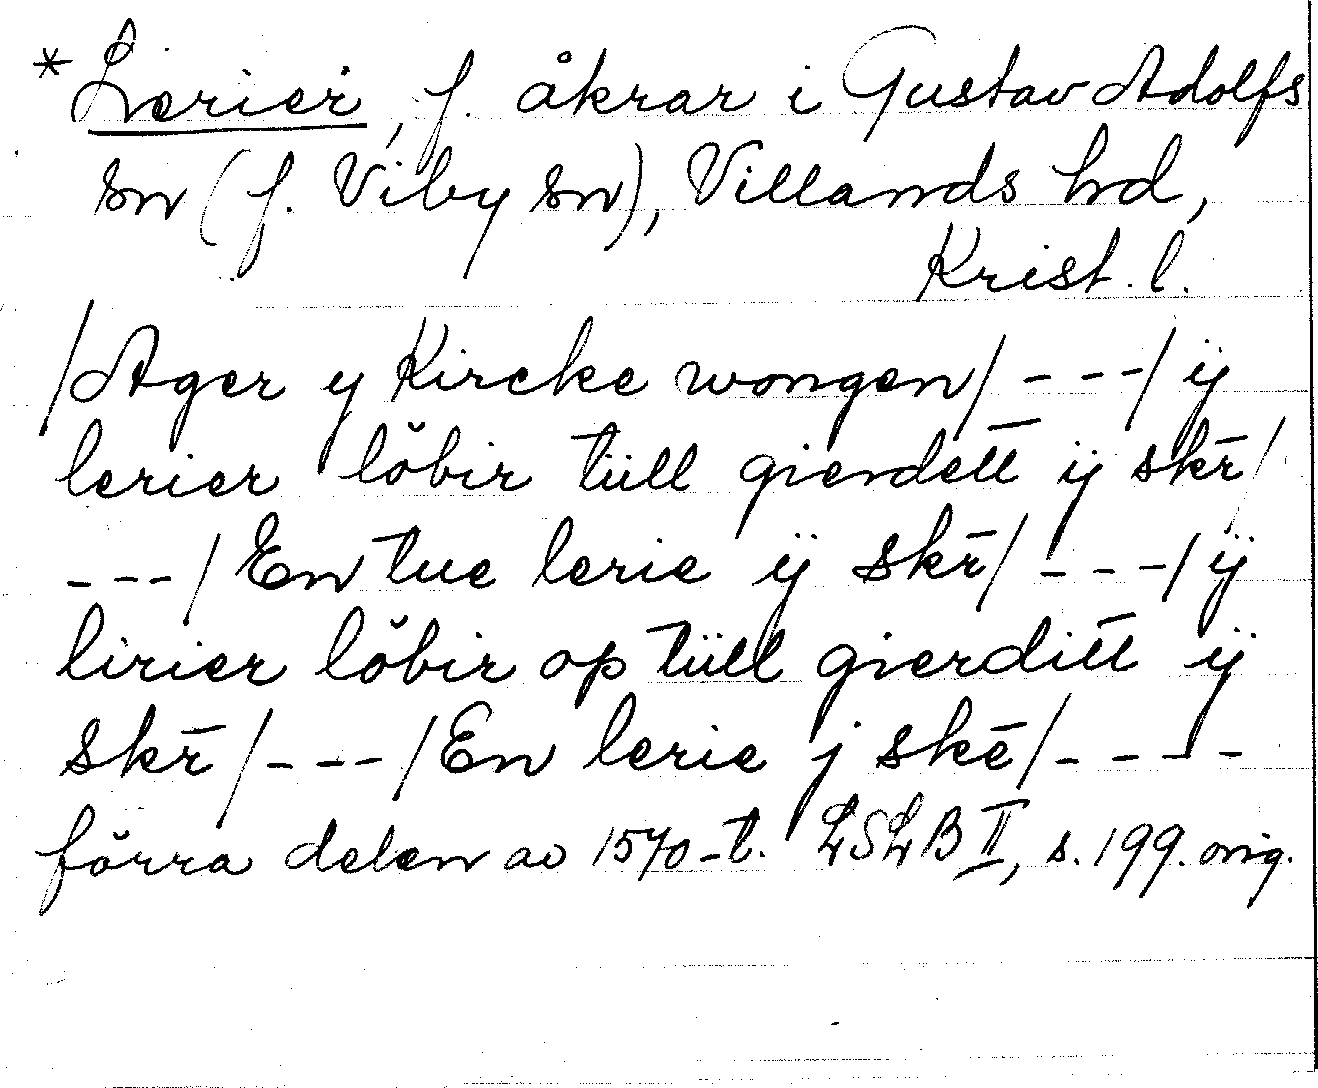 * Lerier, f. åkrar i Gustav Adolfs
sn (f. Viby sn), Villands hd,
Krist. l.
/Ager y Kircke wongen/ - - -/ ÿ
lerier löbir tüll gierdett ÿ skr̄/
- - -/ En tue lerie ÿ skr̄/ - - -/ ÿ
lirier löbir op tüll gierditt ÿ
skr̄/ - - -/ En lerie j skē/ - - - -
förra delen av 1570-t. LSLB II, s. 199. orig.